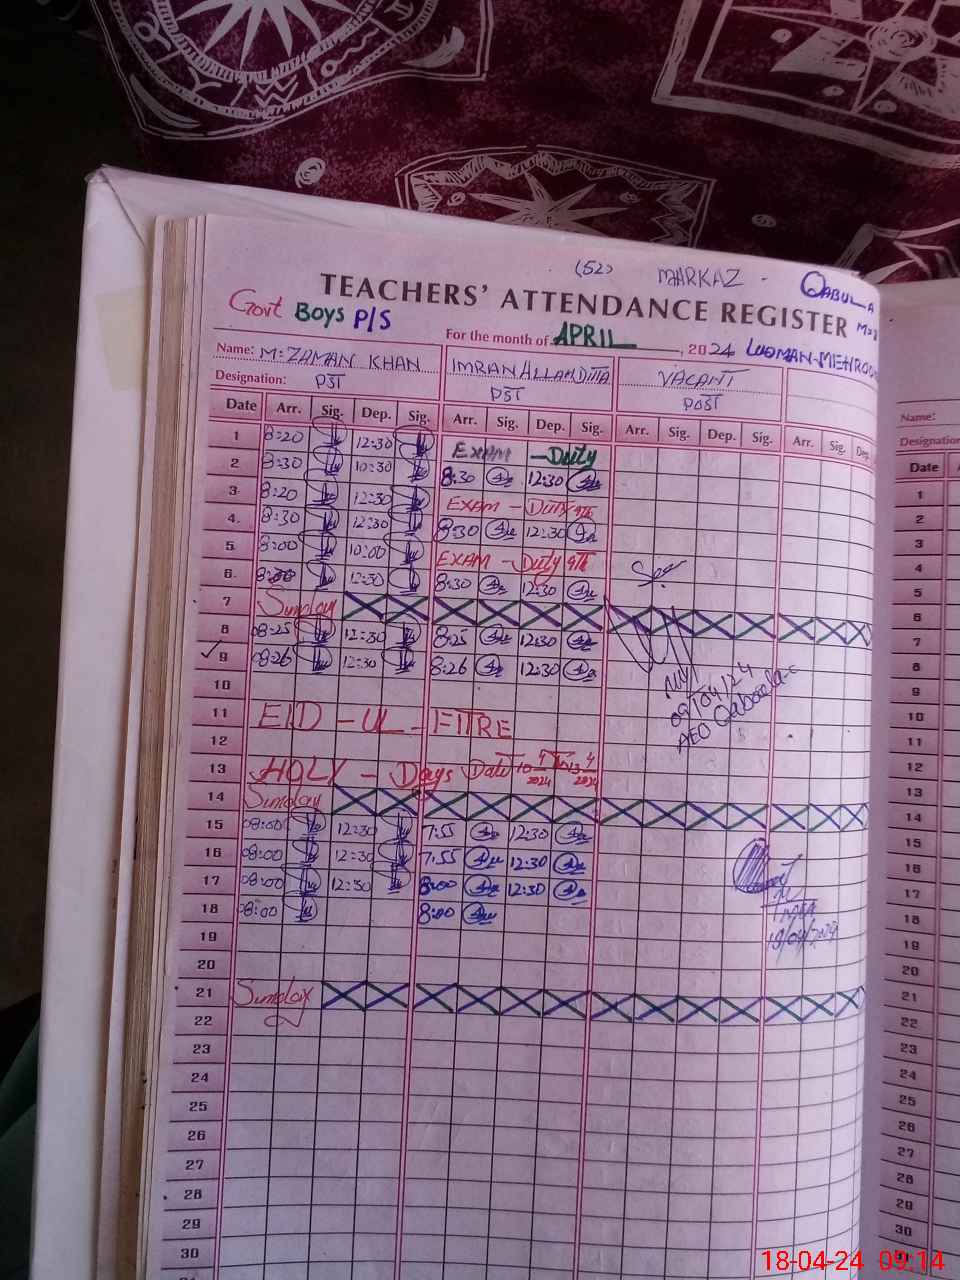 (52) MARKAZ - QABULA
TEACHERS' ATTENDANCE REGISTER
Govt BOYS P/S
For the month of APRIL, 2024 LUQMAN-MEHROO
Name: M:ZAMAN KHAN IMRAN ALLAH DITTA VACANT
Designation: PST PST POST
Date Arr. Sig. Dep. Sig. Arr. Sig. Dep. Sig. Arr. Sig. Dep. Sig. Arr. Sig. Dep.
1 8:20 12:30 EXAM - Duty
2 8:30 10:30 8:30 12:30
3 8:20 12:30 EXAM - DUTY 9th
4 8:30 12:30 8:30 12:30
5 8:00 10:00 EXAM - Duty 9th
6 8:30 12:30 8:30 12:30
7 Sunday
8 08:25 12:30 8:25 12:30
9 08:26 12:30 8:26 12:30
09/04/24
AEO Qaboola-c
10
11 EID - UL - FITRE
12
13 HOLY - Days Date 10 4 2024 13 4 2024
14 Sunday
15 08:00 12:30 7:55 12:30
16 08:00 12:30 7:55 12:30
17 08:00 12:30 8:00 12:30
18 08:00 8:00
MEA
18/04/2024
19
20
21 Sunday
22
23
24
25
26
27
28
29
30
Name:
Designation
Date
1
2
3
4
5
6
7
8
9
10
11
12
13
14
15
16
17
18
19
20
21
22
23
24
25
26
27
28
29
30
18-04-24 09:14